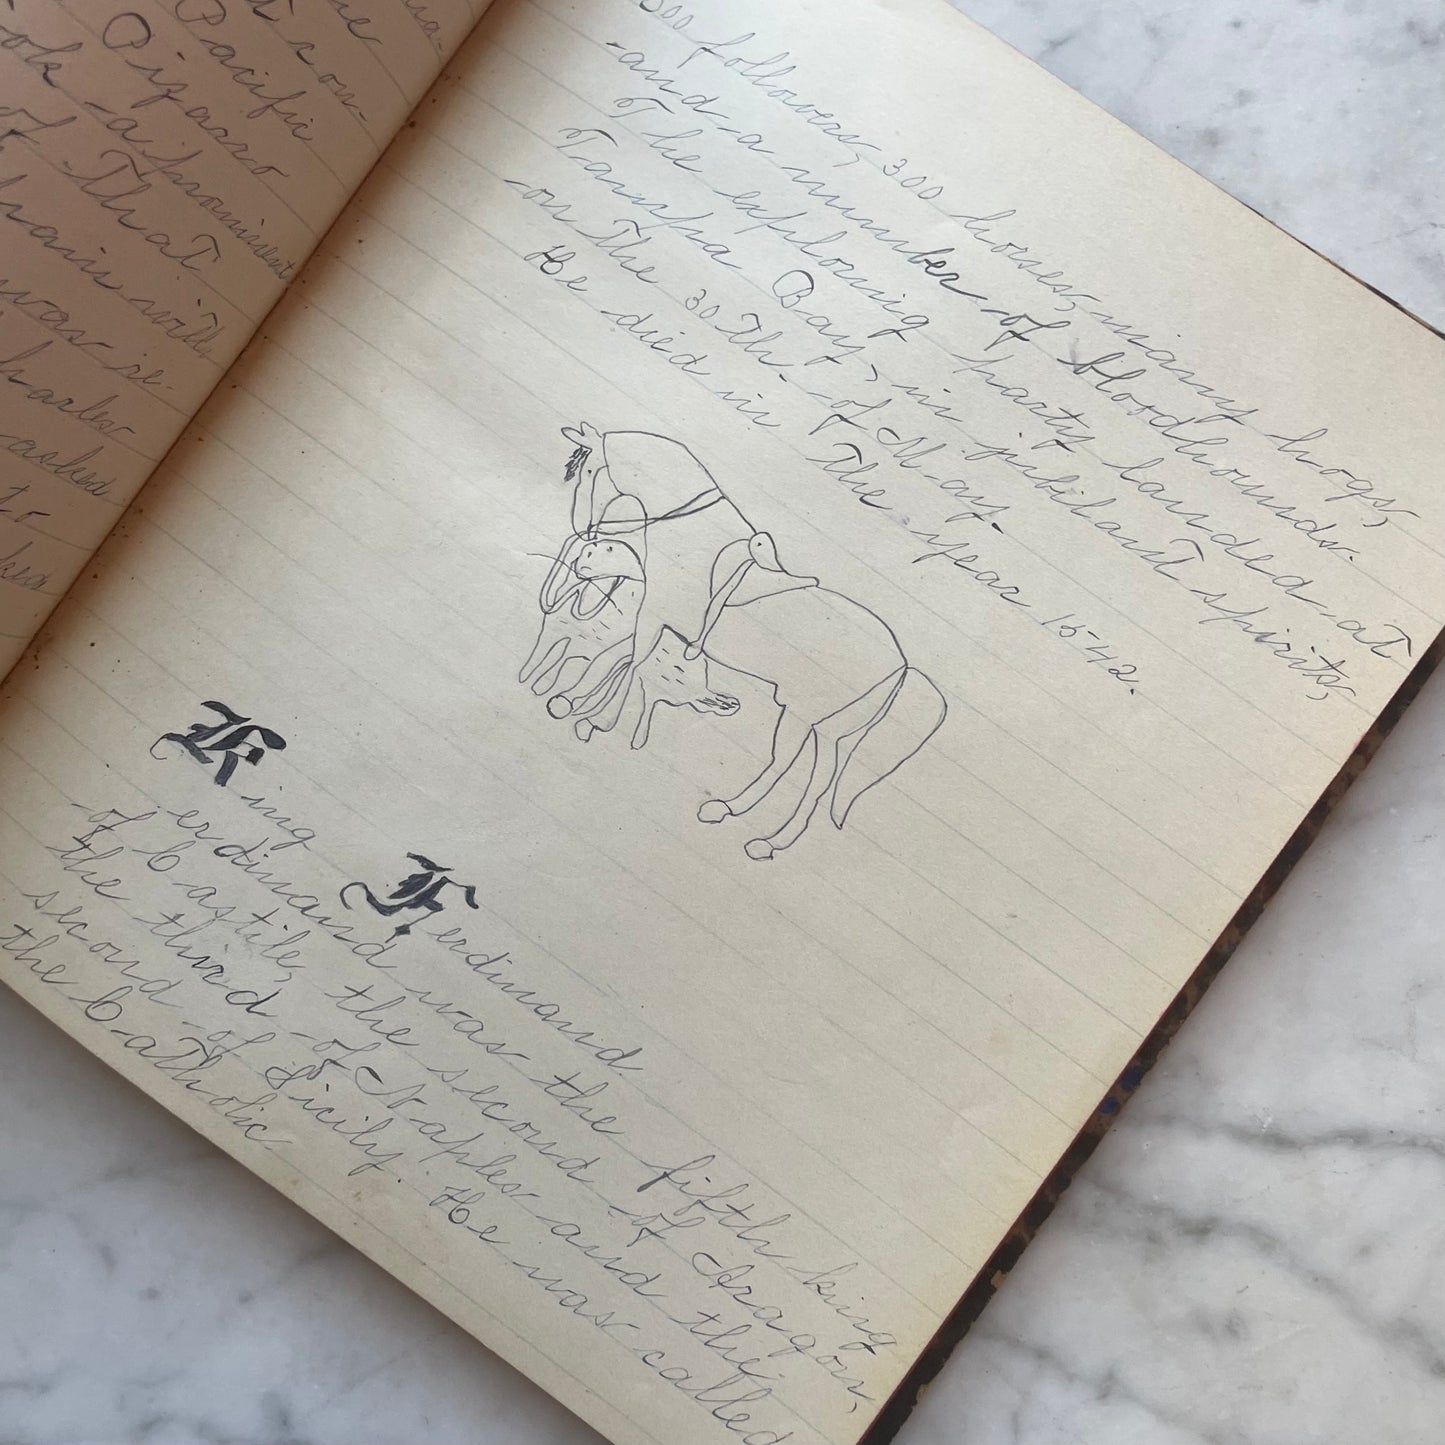 Pacific
Pizarro
a prominent
of that
with
was re-
Charles
asked
to
500 followers, 300 horses, many hogs,
and a number of bloodhounds.
The exploring party landed at
Tampa Bay, in jubilant spirits,
on the 30th of May.
He died in the year 1542.
King Ferdinand
erdinand was the fifth king
of Castile, the second of Aragon,
the third of Naples and the
second of Sicily. He was called
the Catholic